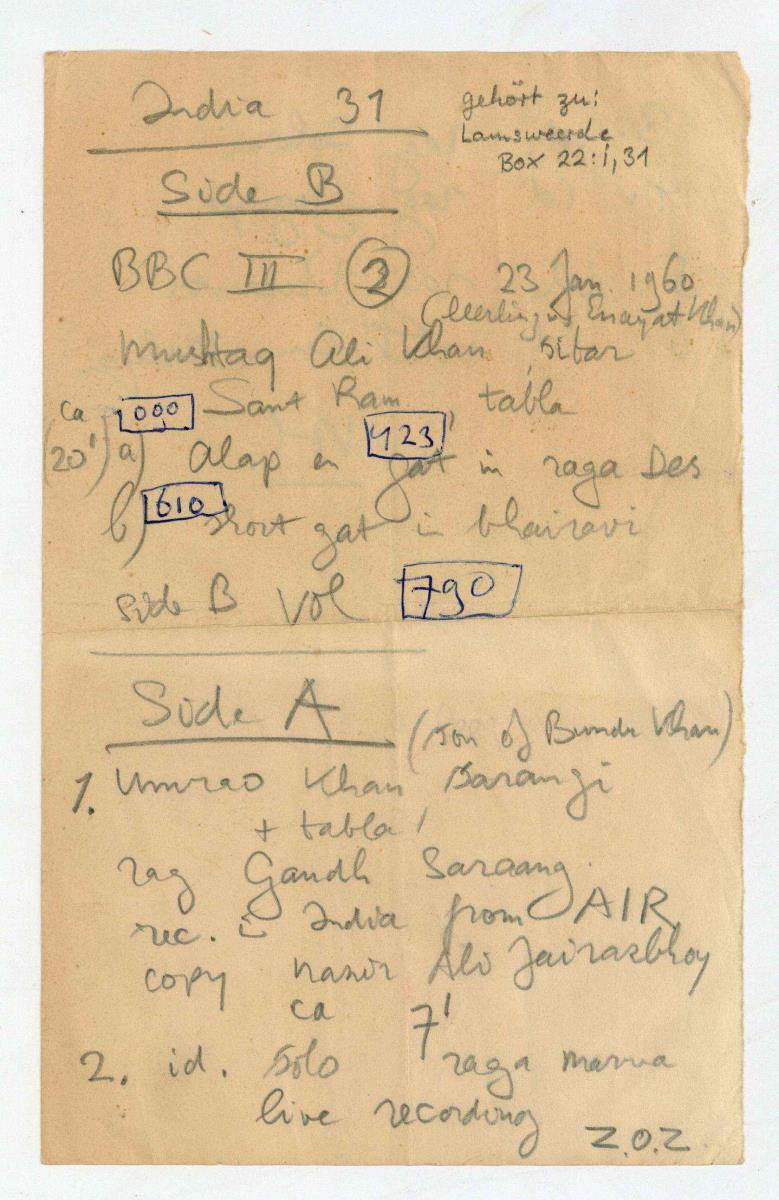 India 31
gehört zu:
Lamsweerde
Box 22:1,31
Side B
BBC III 2 23 Jan. 1960
(leerling v. Enayat Khan)
Mushtaq Ali Khan, sitar
Sant Ram, tabla
ca 20' 000
a) Alap en gat in raga Des
423'
b) short gat in bhairavi
610
Side B Vol 790
Side A
(son of Bundu Khan)
1. Umrao Khan Sarangi
+ tabla
rag Gandh Saraang.
rec. in India from AIR
copy Nazir Ali Jairazbhoy
ca 7'
2. id. solo raga marva
live recording
Z.O.Z.